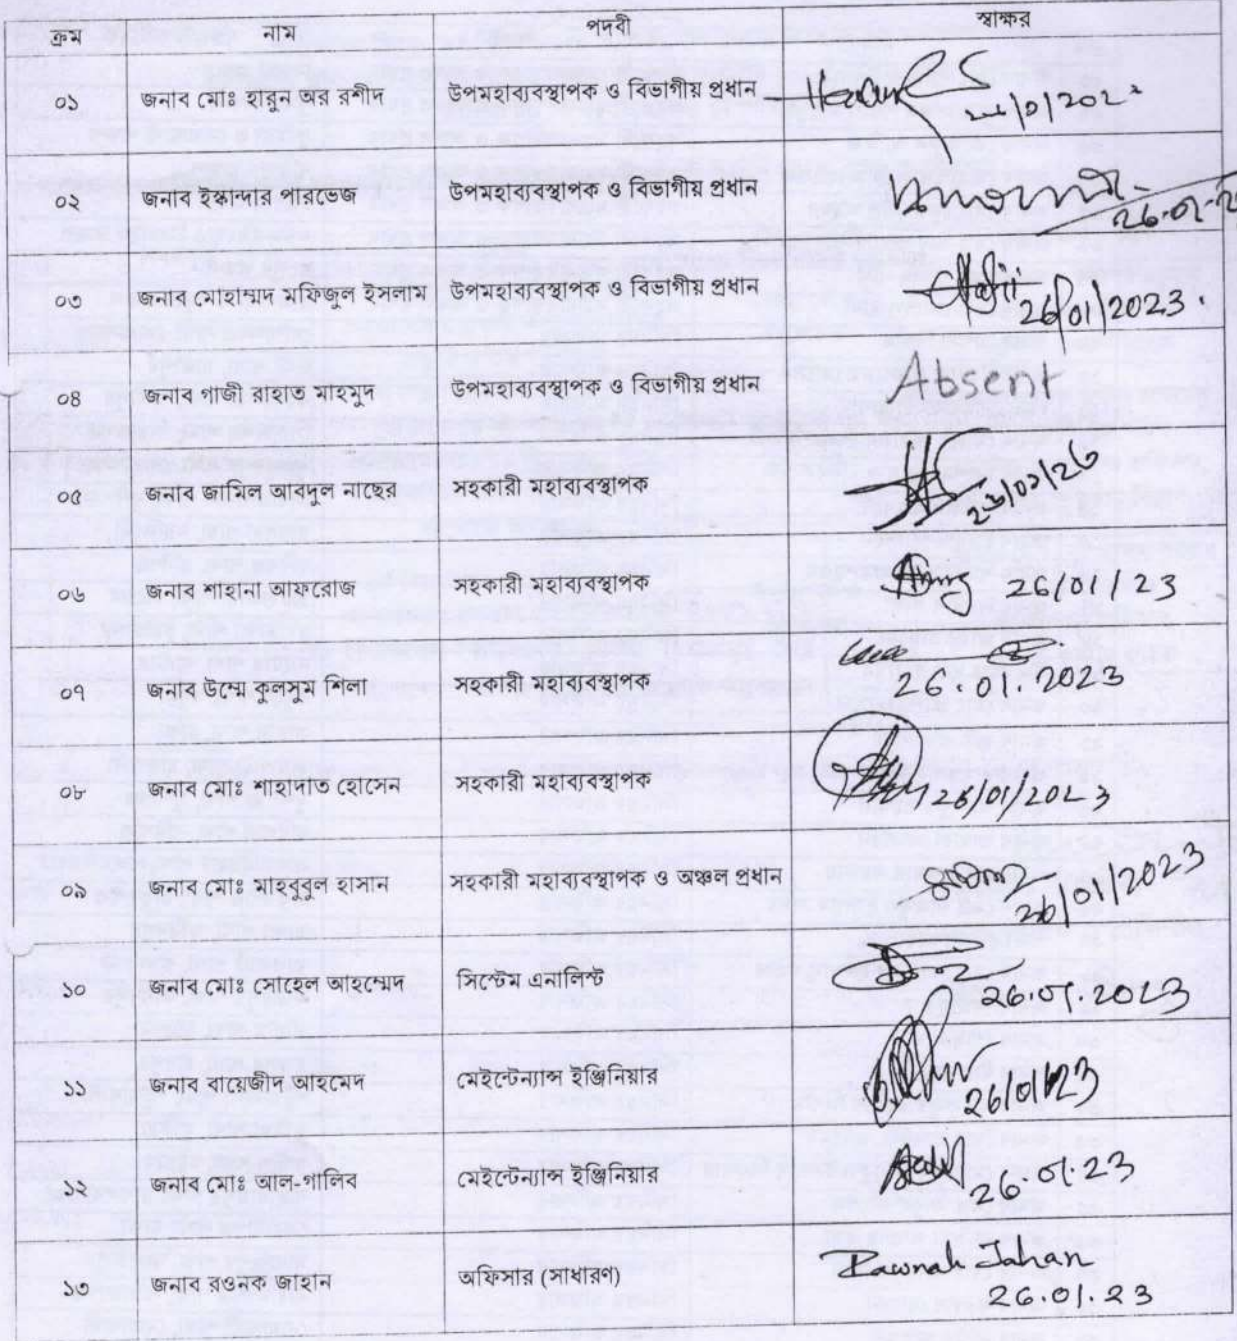 ক্রম নাম পদবী স্বাক্ষর
০১ জনাব মোঃ হারুন অর রশীদ উপমহাব্যবস্থাপক ও বিভাগীয় প্রধান
০২ জনাব ইস্কান্দার পারভেজ উপমহাব্যবস্থাপক ও বিভাগীয় প্রধান
26.01.2
০৩ জনাব মোহাম্মদ মফিজুল ইসলাম উপমহাব্যবস্থাপক ও বিভাগীয় প্রধান
26/01/2023.
০৪ জনাব গাজী রাহাত মাহমুদ উপমহাব্যবস্থাপক ও বিভাগীয় প্রধান Absent
০৫ জনাব জামিল আবদুল নাছের সহকারী মহাব্যবস্থাপক
০৬ জনাব শাহানা আফরোজ সহকারী মহাব্যবস্থাপক 26/01/23
০৭ জনাব উম্মে কুলসুম শিলা সহকারী মহাব্যবস্থাপক 26.01.2023
০৮ জনাব মোঃ শাহাদাত হোসেন সহকারী মহাব্যবস্থাপক 26/01/2023
০৯ জনাব মোঃ মাহবুবুল হাসান সহকারী মহাব্যবস্থাপক ও অঞ্চল প্রধান
26/01/2023
১০ জনাব মোঃ সোহেল আহম্মেদ সিস্টেম এনালিস্ট
26.01.2023
১১ জনাব বায়েজীদ আহমেদ মেইন্টেন্যান্স ইঞ্জিনিয়ার
26/01/23
১২ জনাব মোঃ আল-গালিব মেইন্টেন্যান্স ইঞ্জিনিয়ার
26.01.23
১৩ জনাব রওনক জাহান অফিসার (সাধারণ) Rawnak Jahan
26.01.23